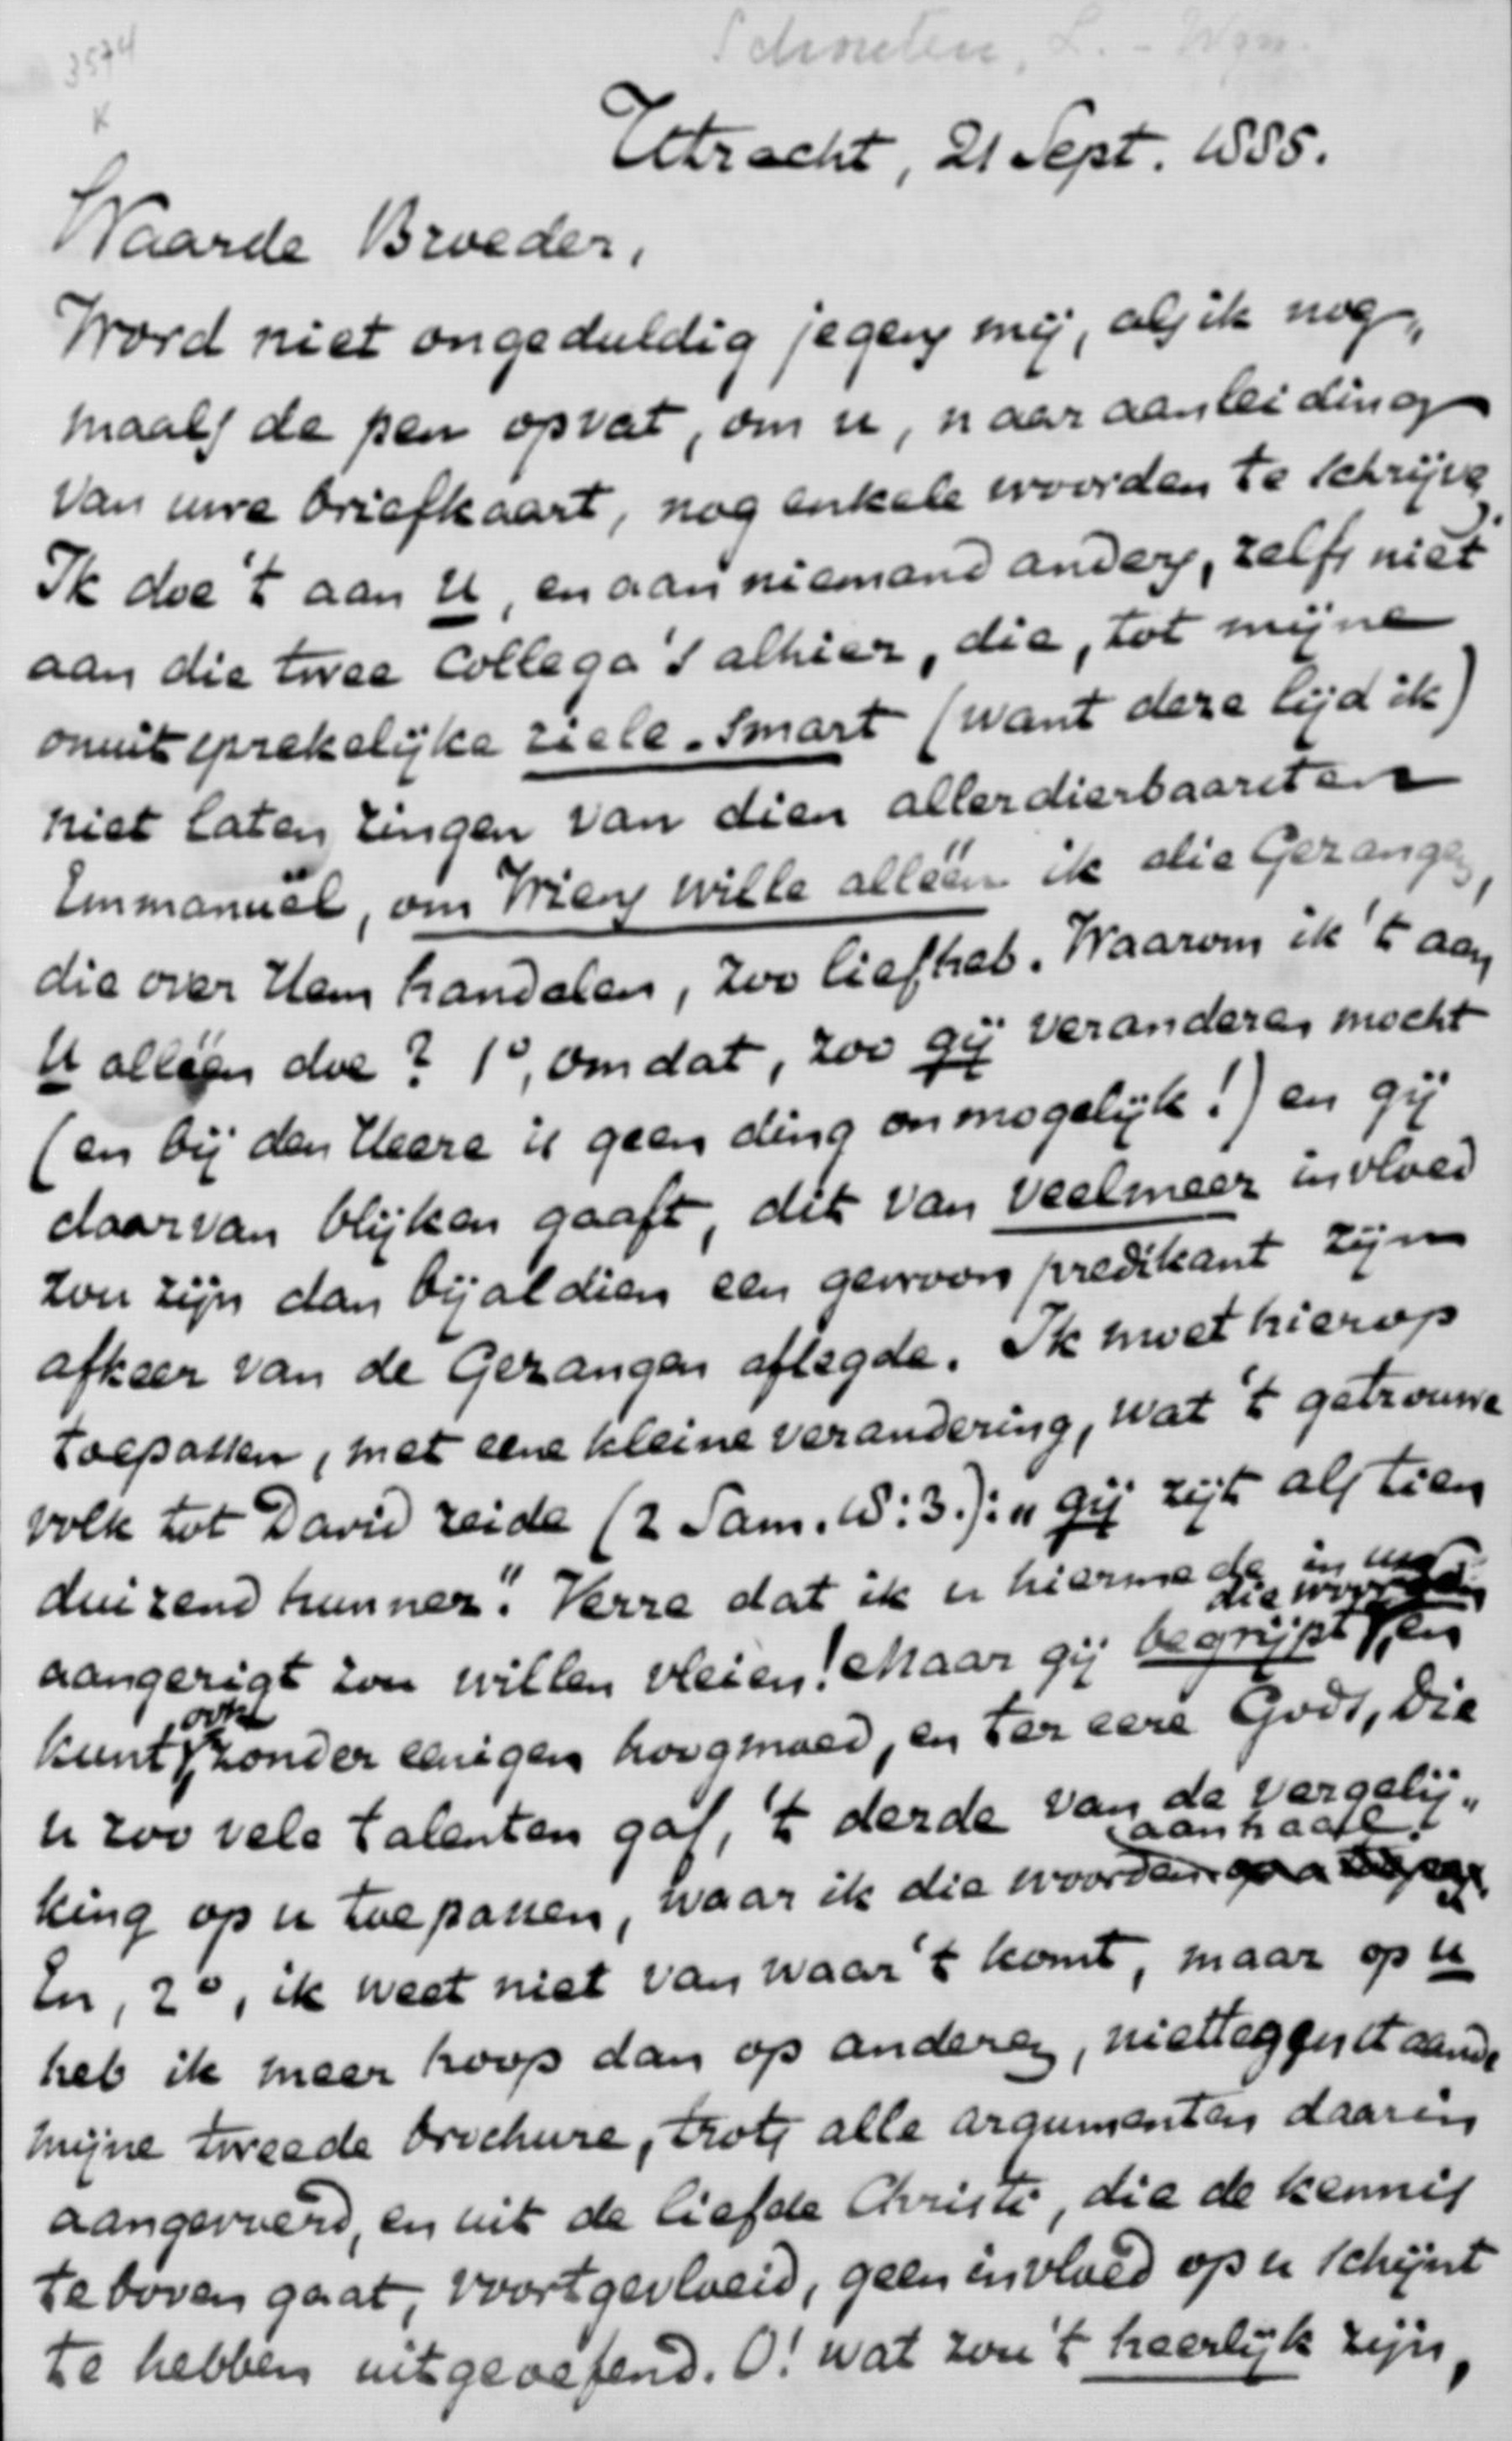 3574
Schouten, L. - Wzn.
Utrecht, 21 Sept. 1885.
Waarde Broeder,
Word niet ongeduldig jegens mij, als ik nog„
maals de pen opvat, om u, naar aanleiding
van uwe briefkaart, nog enkele woorden te schrijve
Ik doe 't aan U, en aan niemand anders, zelfs niet
aan die twee collega's alhier, die, tot mijne
onuitsprekelijke ziele-smart (want deze lijd ik)
niet laten zingen van dien allerdierbaarsten
Emmanuël, om Wiens wille alléén ik die Gezangen,
die over Hem handelen, zoo liefheb. Waarom ik 't aan
U alléén doe? 1°, omdat, zoo gij veranderen mocht
(en bij den Heere is geen ding onmogelijk!) en gij
daarvan blijken gaaft, dit van veelmeer invloed
zou zijn dan bijaldien een gewoon predikant zijn
afkeer van de Gezangen aflegde. Ik moet hierop
toepassen, met eene kleine verandering, wat 't getrouwe
volk tot David zeide (2 Sam. 18:3.): „gij zijt als tien
duizend hunner". Verre dat ik u hiermede in
aangerigt zou willen vleien! Maar gij begrijpt die woorden, en
kunt, ook zonder eenigen hoogmoed, en ter eere Gods, Die
u zoo vele talenten gaf, 't derde van de vergelij„
king op u toepassen, waar ik die woorden aanhaal.
En, 2°, ik weet niet van waar 't komt, maar op u
heb ik meer hoop dan op anderen, niettegenstaande
mijne tweede brochure, trots alle argumenten daarin
aangevoerd, en uit de liefde Christi, die de kennis
te boven gaat, voortgevloeid, geen invloed op u schijnt
te hebben uitgeoefend. O! wat zou 't heerlijk zijn,